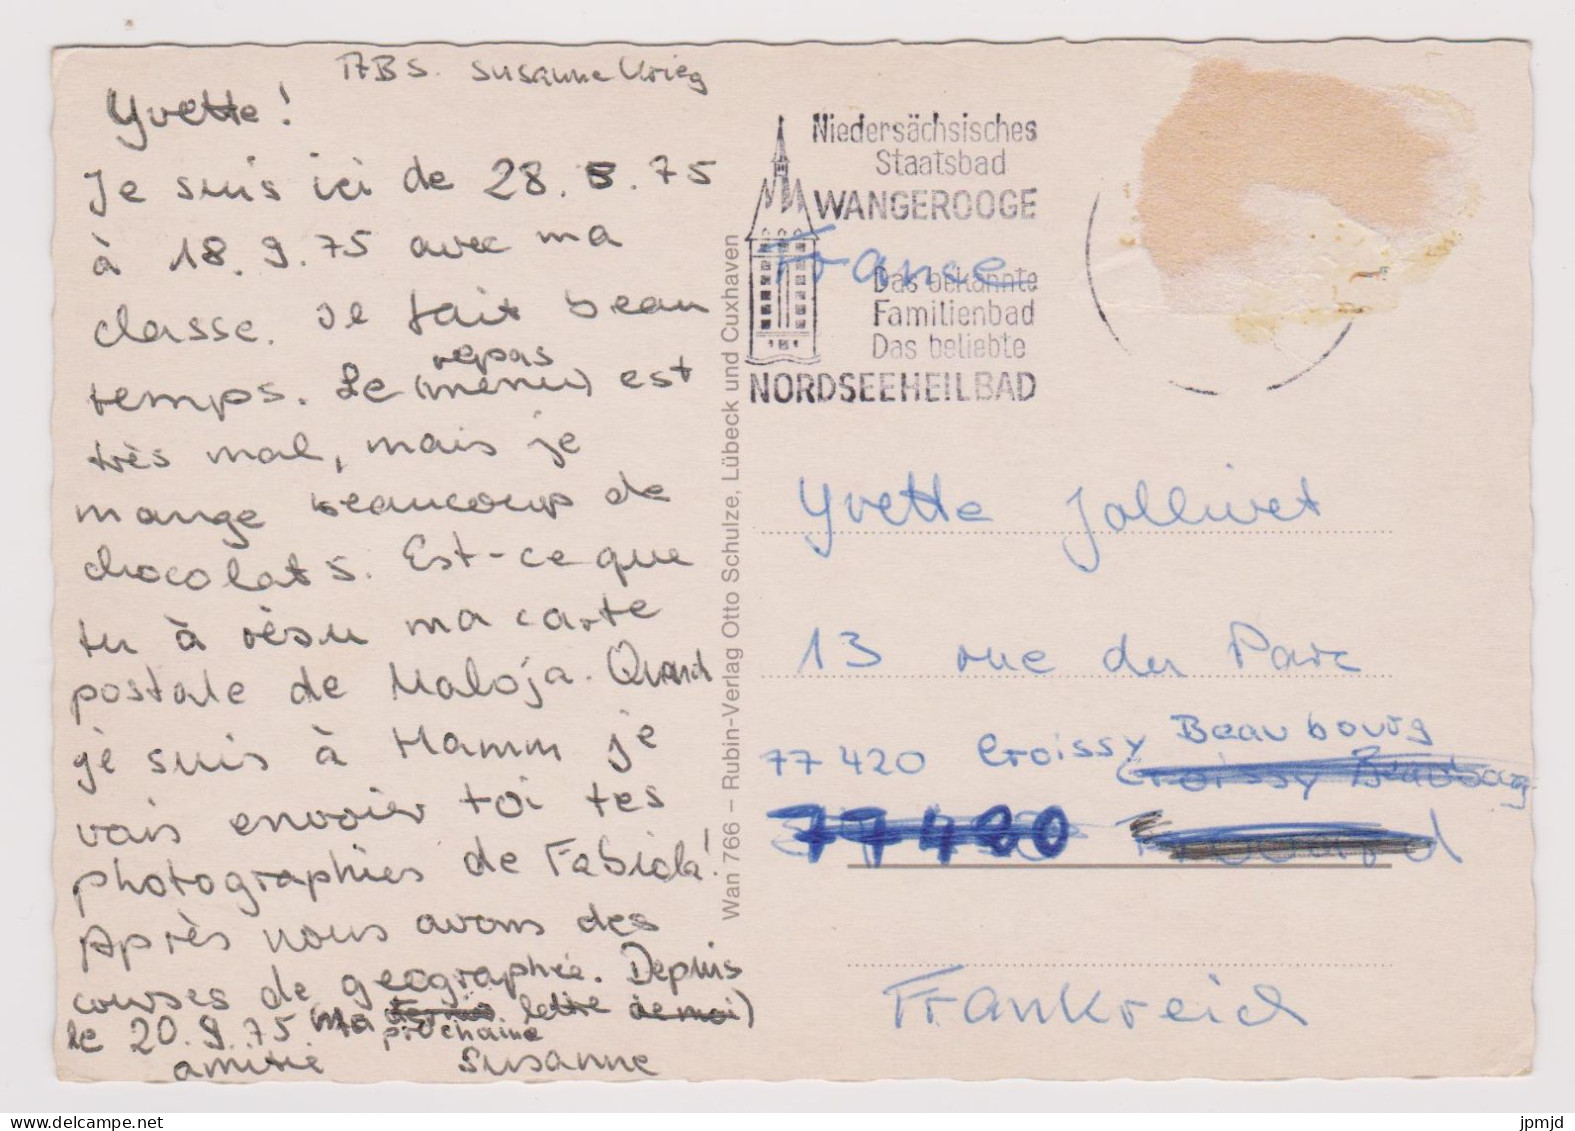 ABS. Susanne Krieg
Yvette!
Je suis ici de 28.8.75
à 18.9.75 avec ma
classe. Il fait beau
temps. Le (menu) repas est
très mal, mais je
mange beaucoup de
chocolats. Est-ce que
tu à résu ma carte
postale de Maloja. Quand
je suis à Hamm je
vais envoier toi tes
photographies de Fabiola!
Après nous avons des
courses de geographie. Depuis
le 20.9.75 (ma prochaine lettre)
amitié Susanne
Wan 766 – Rubin-Verlag Otto Schulze, Lübeck und Cuxhaven
Niedersächsisches
Staatsbad
WANGEROOGE
France
Das bekannte
Familienbad
Das beliebte
NORDSEEHEILBAD
Yvette Jollivet
13 rue du Parc
77420 Croissy Beaubourg
Croissy Beaubourg
77420
Frankreich
jpmjd